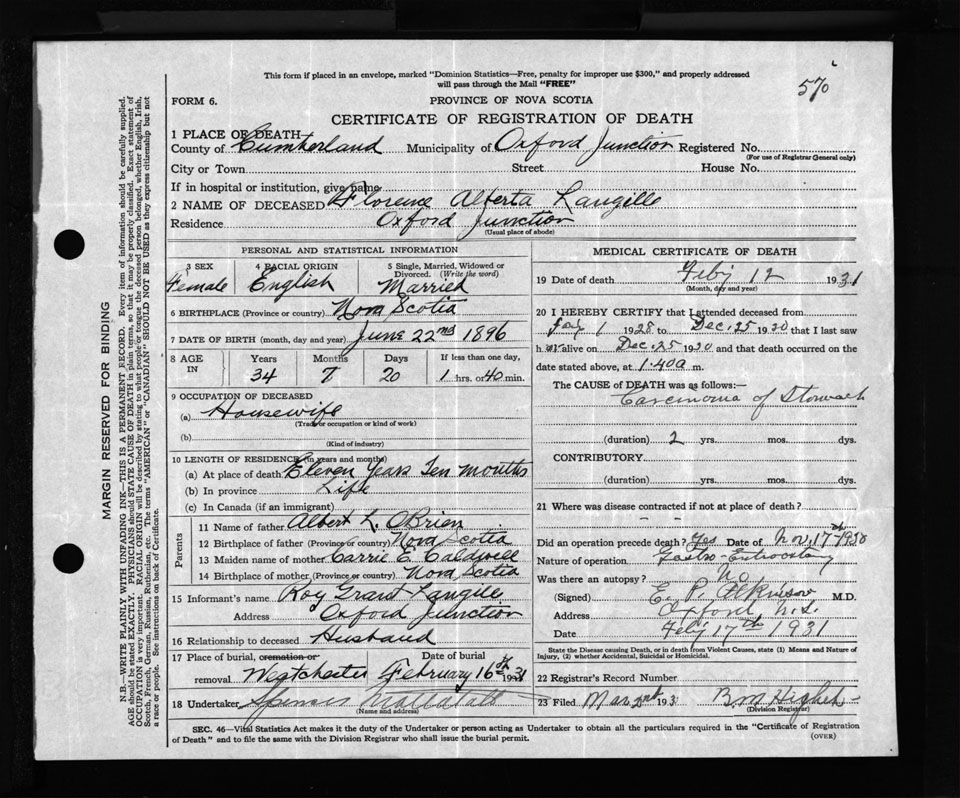 This form if placed in an envelope, marked "Dominion Statistics—Free, penalty for improper use $300," and properly addressed
will pass through the Mail "FREE"
570
FORM 6.
PROVINCE OF NOVA SCOTIA
CERTIFICATE OF REGISTRATION OF DEATH
1 PLACE OF DEATH—
County of Cumberland Municipality of Oxford Junction Registered No.
(For use of Registrar General only)
City or Town Street House No.
If in hospital or institution, give name
2 NAME OF DECEASED Florence Alberta Langille
Residence Oxford Junction
(Usual place of abode)
PERSONAL AND STATISTICAL INFORMATION
3 SEX 4 RACIAL ORIGIN 5 Single, Married, Widowed or
Divorced. (Write the word)
Female English Married
6 BIRTHPLACE (Province or country) Nova Scotia
7 DATE OF BIRTH (month, day and year) June 22nd 1896
8 AGE IN Years Months Days If less than one day,
34 7 20 1 hrs. or 40 min.
9 OCCUPATION OF DECEASED
(a) Housewife
(Trade or occupation or kind of work)
(b)
(Kind of industry)
10 LENGTH OF RESIDENCE (in years and months)
(a) At place of death Eleven Years Ten months
(b) In province Life
(c) In Canada (if an immigrant)
Parents
11 Name of father Albert L. O'Brien
12 Birthplace of father (Province or country) Nova Scotia
13 Maiden name of mother Carrie E. Caldwell
14 Birthplace of mother (Province or country) Nova Scotia
15 Informant's name Roy Grant Langille
Address Oxford Junction
16 Relationship to deceased Husband
17 Place of burial, cremation or removal Date of burial
Westchester February 16th 1931
18 Undertaker Spencer
(Name and address)
MEDICAL CERTIFICATE OF DEATH
19 Date of death Feby 12 1931
(Month, day and year)
20 I HEREBY CERTIFY that I attended deceased from
Jay 1 1928 to Dec. 25 1930 that I last saw
h er alive on Dec. 25 1930 and that death occurred on the
date stated above, at 1.40 a m.
The CAUSE OF DEATH was as follows:—
Carcinoma of Stomach
(duration) 2 yrs. mos. dys.
CONTRIBUTORY
(duration) yrs. mos. dys.
21 Where was disease contracted if not at place of death?
— —
Did an operation precede death? Yes Date of Nov. 17th 1930
Nature of operation Gastro-Entrostomy
Was there an autopsy? No
(Signed) E. P. Atkinson M.D.
Address Oxford N.S.
Date Feby 17th 1931
State the Disease causing Death, or in death from Violent Causes, state (1) Means and Nature of
Injury, (2) whether Accidental, Suicidal or Homicidal.
22 Registrar's Record Number
23 Filed Mar 2nd 193 B M
Division Registrar
SEC. 46—Vital Statistics Act makes it the duty of the Undertaker or person acting as Undertaker to obtain all the particulars required in the "Certificate of Registration
of Death" and to file the same with the Division Registrar who shall issue the burial permit.
(OVER)
MARGIN RESERVED FOR BINDING
N.B.—WRITE PLAINLY WITH UNFADING INK—THIS IS A PERMANENT RECORD. Every item of information should be carefully supplied.
AGE should be stated EXACTLY. PHYSICIANS should STATE CAUSE OF DEATH in plain terms, so that it may be properly classified. Exact statement of
OCCUPATION is very important. RACIAL ORIGIN will be described by stating to what people or tongue the deceased person belonged, whether English, Irish,
Scotch, French, German, Russian, Ruthenian, etc. The terms "AMERICAN" or "CANADIAN" SHOULD NOT BE USED as they express citizenship but not
a race or people. See instructions on back of Certificate.